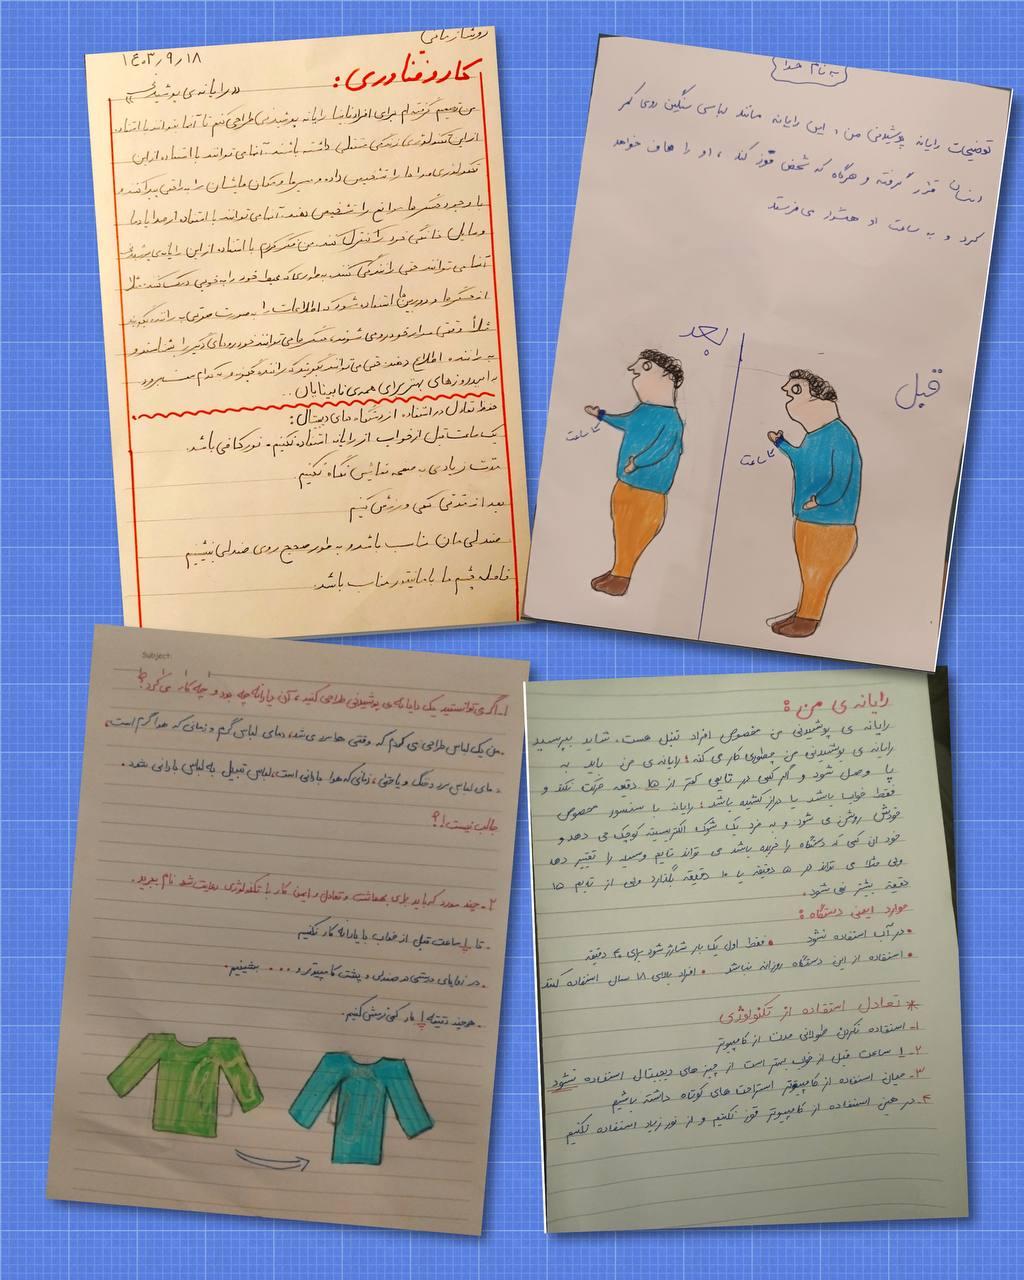 ۱۴۰۳/۹/۱۸
کار و فناوری:
«رایانه‌ی پوشیدنی»
من تصمیم گرفته‌ام برای افراد نابینا رایانه پوشیدنی طراحی کنم تا آنها بتوانند با استفاده
از این تکنولوژی زندگی مستقلی داشته باشند. آنها می توانند با استفاده از این
تکنولوژی صداها را تشخیص داده و مسیرها و مکان هایشان را به راحتی پیدا کنند و
با وجود حسگرها موانع را تشخیص دهند. آنها می توانند با استفاده از صدا یا دما
وسایل خانگی خود را کنترل کنند. من فکر کردم با استفاده از این رایانه‌ی پوشیدنی
آنها می توانند حتی رانندگی کنند. به طوری که محیط خود را به خوبی درک کنند. مثلا
از حسگرها و دوربین ها استفاده شود که اطلاعات را به صورت صوتی به راننده بگویند
مثلاً وقتی سوار خودرو می شوند، حسگرها می توانند خودروهای دیگر را شناسند و
به راننده اطلاع دهند. حتی می تواند بگویند که راننده چگونه و به کدام مسیر برود
به امید روزهای بهتر برای همه‌ی نابینایان...
حفظ تعادل در استفاده از دستگاه های دیجیتال:
یک ساعت قبل از خواب از رایانه استفاده نکنیم - نور کافی باشد.
مدت زیادی به صفحه نمایش نگاه نکنیم.
بعد از مدتی کمی ورزش کنیم
صندلی مان مناسب باشد و به طور صحیح روی صندلی بنشینیم
فاصله چشم ما با مانیتور مناسب باشد.
به نام خدا
توضیحات رایانه پوشیدنی من: این رایانه مانند لباسی سنگین روی کمر
انسان قرار گرفته و هرگاه که شخص قوز کند، او را صاف خواهد
کرد و به ساعت او هشدار می فرستد
بعد
قبل
ساعت
ساعت
Subject:
۱- اگر می توانستید یک رایانه‌ی پوشیدنی طراحی کنید، آن رایانه چه بود و چه کار می کرد؟
من یک لباس طراحی می کردم که وقتی هوا سرد می شد، دمای لباس گرم و زمانی که هوا گرم است،
دمای لباس سرد و خنک و یا حتی، زمانی که هوا بارانی است، لباس تبدیل به لباس بارانی بشود.
جالب نیست؟!
۲- چند مورد که باید برای بهداشت و تعادل و ایمن کار با تکنولوژی رعایت شد نام ببرید.
- تا ۱ ساعت قبل از خواب با رایانه کار نکنیم
- در زمان‌های درستی در صندلی و پشت کامپیوتر و ... بنشینیم.
- هر چند دقیقه ۱ بار کمی نرمش کنیم.
رایانه ی من:
رایانه ی پوشیدنی من مخصوص افراد تنبل هست. شاید بپرسید
رایانه ی پوشیدنی من چطوری کار می کنه؟ رایانه ی من باید به
پا وصل شود و اگر کسی در تایمی کمتر از ۱۵ دقیقه حرکت نکند و
فقط خواب باشد یا دراز کشیده باشد؛ رایانه با سنسور مخصوص
خودش روشن می شود و به فرد یک شوک الکتریسیته کوچک می دهد و
خود آن کسی که دستگاه را خریده باشد می تواند تایم وسیله را تغییر دهد
ولی مثلا می تواند در ۵ دقیقه یا ۱۰ دقیقه بگذارد ولی از تایم ۱۵
دقیقه بیشتر نمی شود.
موارد ایمنی دستگاه:
• در آب استفاده نشود • فقط اول یک بار شارژ شود برای ۴۰ دقیقه
• استفاده از این دستگاه روزانه نباشد • افراد بالای ۱۸ سال استفاده کنند
* تعادل استفاده از تکنولوژی
۱- استفاده نکردن طولانی مدت از کامپیوتر
۲- ۱ ساعت قبل از خواب بهتر است از چیز های دیجیتال استفاده نشود
۳- میان استفاده از کامپیوتر استراحت های کوتاه داشته باشیم
۴- در حین استفاده از کامپیوتر قوز نکنیم و از نور زیاد استفاده نکنیم